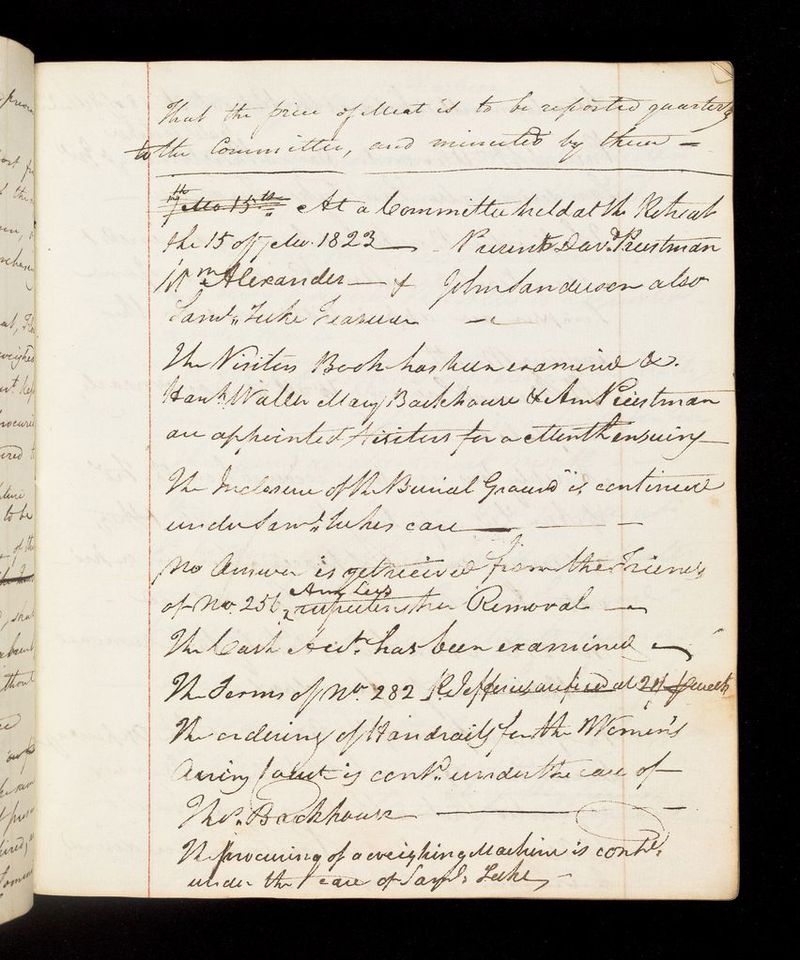 That the price of Meat is to be reported quarterly
to the Committee, and minuted by them —
7 Mo 15th At a Committee held at the Retreat
the 15 of 7 Mo. 1823 — Present Davd Priestman
Wm Alexander — & John Sanderson also
Saml Tuke Treasurer —
The Visiters Book has been examined &.
Hanh Waller Mary Backhouse & Ann Priestman
are appointed Visiters for a Month ensuing —
The Inclosure of the Burial Ground is continued
under Saml Tukes care —
No Answer is yet received from the Friends
of No. 256 Amy Leys
respecting her Removal —
The Cash Acct. has been examined —
The Terms of No. 282 R. Jefferies are fixed at 20/ Week
The ordering of Handrails for the Women's
Airing Court is contd. under the care of —
Thos. Backhouse —
The procuring of a weighing Machine is contd.
under the care of Saml. Tuke, —